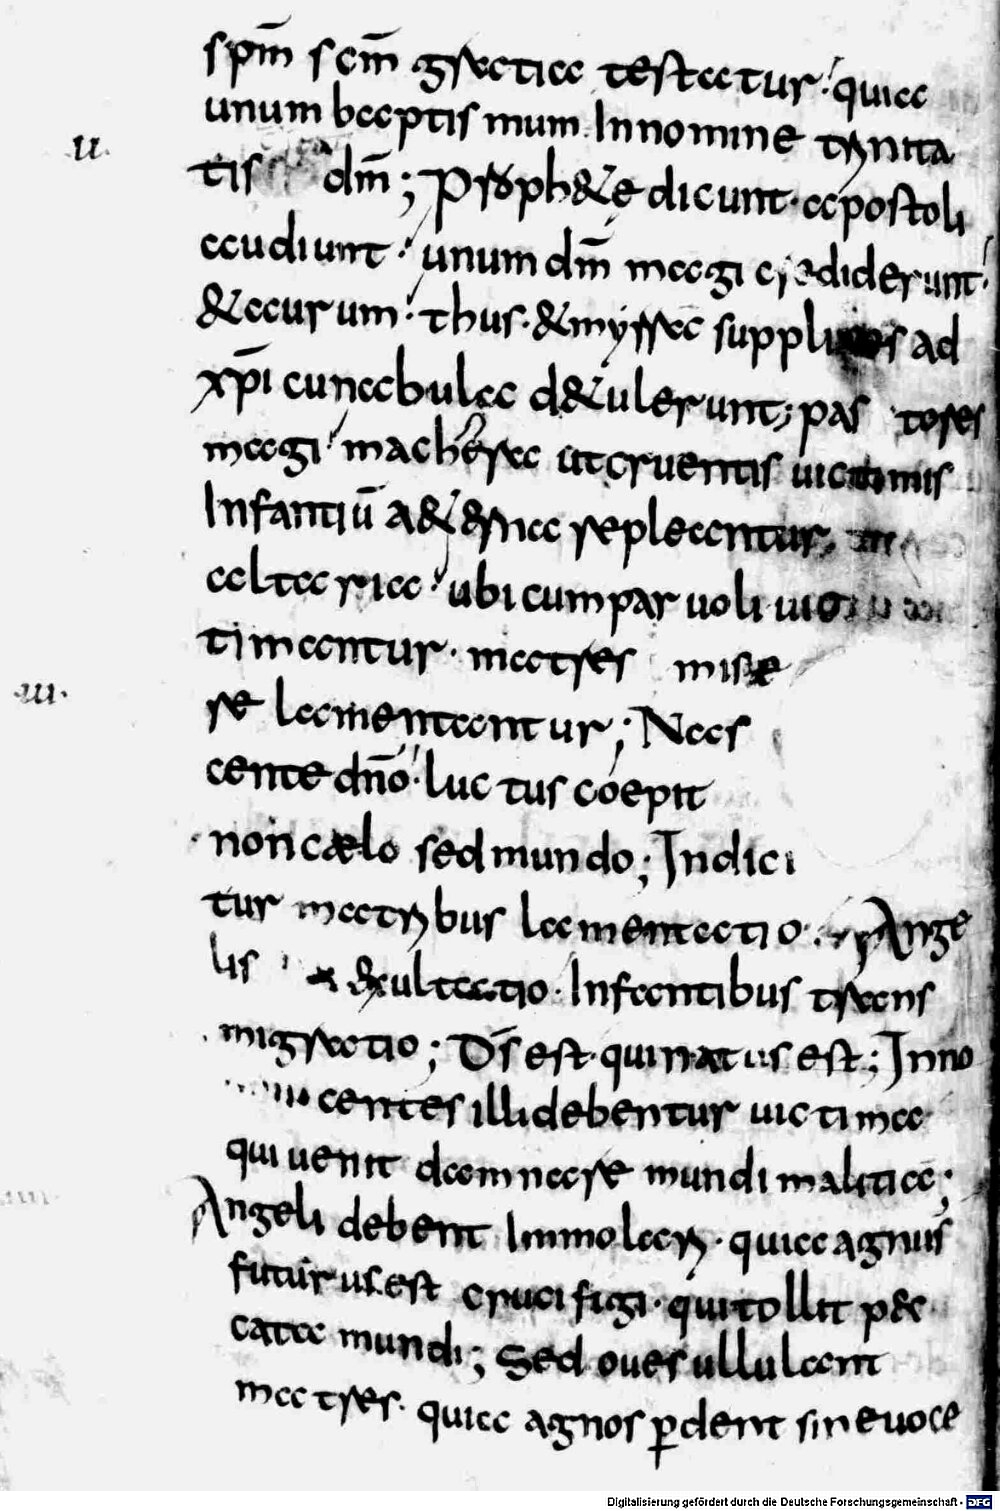 spm̄ scm̄ gratia testatur quia
unum baptismum In nomine trinita
.ii.
tis dm̄; Prophetae dicunt· apostoli
audiunt· unum dm̄ magi crediderunt·
& aurum· thus· & myrra supplices ad
xp̄i cunabula d&ulerunt; pastores
magi machera ut cruentis uictimis
Infantiū a&&rna repleantur,
altaria· ubi cum paruoli
timantur· matres misere
.iii.
se lamentantur; Nas
cente dn̄o· luctus coepit
non cælo sed mundo; Indici
tur matribus lamentatio· Ange
lis &xultatio· Infantibus trans
migratio; Ds̄ est· qui natus est; Inno
centes illi debentur uictimae
qui uenit damnare mundi malitia;
Angeli debent Immolari· quia agnus
futurus est crucifigi· qui tollit pec
cata mundi; Sed oues ullulant
matres· quia agnos perdent sine uoce
Digitalisierung gefördert durch die Deutsche Forschungsgemeinschaft - DFG